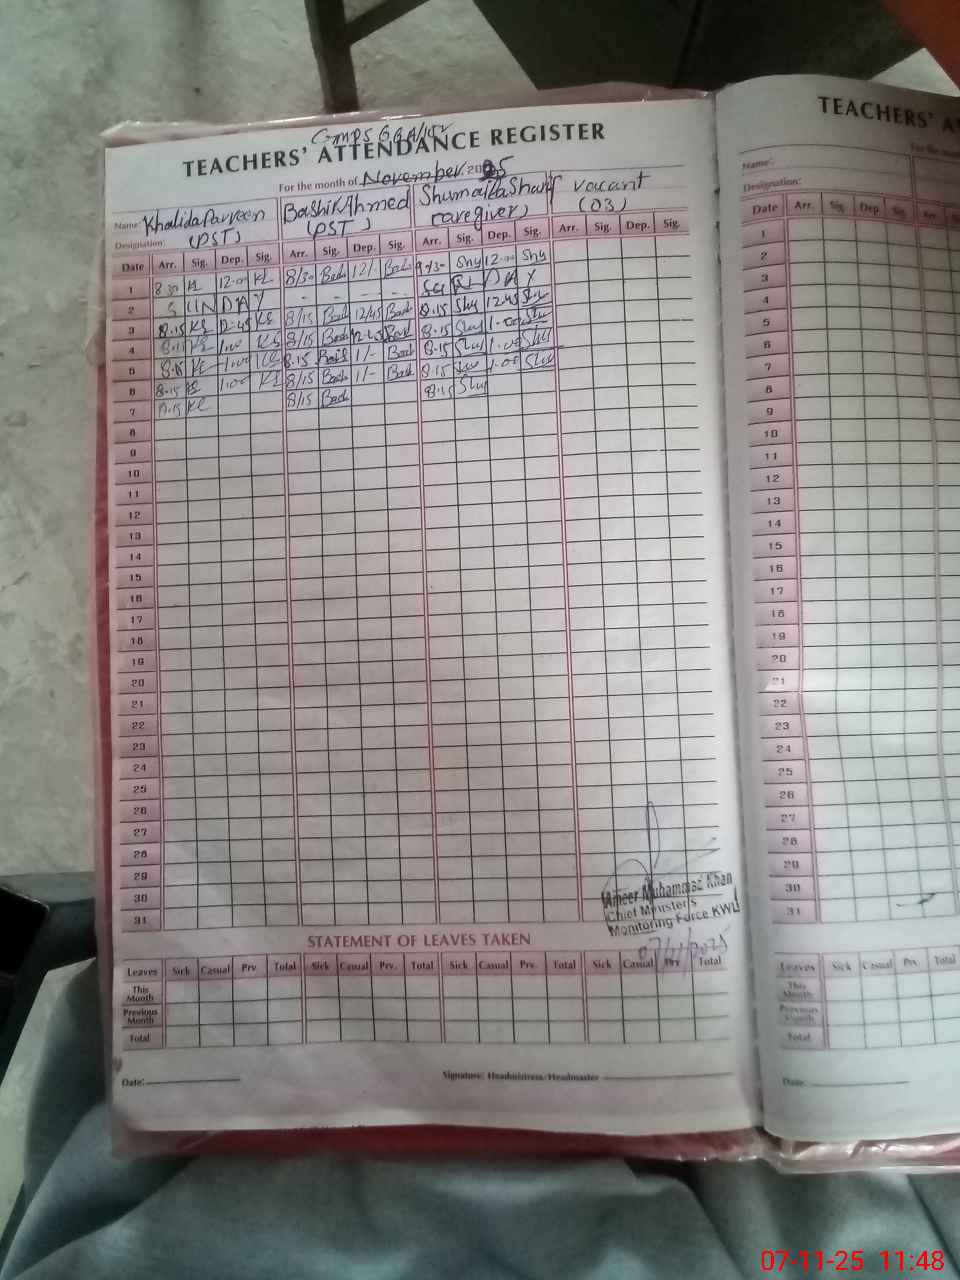 GMPS 66A/15L
TEACHERS' ATTENDANCE REGISTER
For the month of November 2025
Name: Khalida Parveen Bashir Ahmed Shumaila Sharif vacant
Designation: (PST) (PST) (caregiver) (03)
Date Arr. Sig. Dep. Sig. Arr. Sig. Dep. Sig. Arr. Sig. Dep. Sig. Arr. Sig. Dep. Sig.
1 8.30 12.00 8/30 12/- 9/30 12.00
2 SUNDAY - - - -
3 8.15 12.45 8/15 12/45 8.15 12.45
4 8.15 1.00 8/15 8.15 1.00
5 8.15 1.00 8.15 1/- 8.15 1.00
6 8.15 1.00 8/15 1/- 8.15 1.00
7 8.15 8/15 8.15
8
9
10
11
12
13
14
15
16
17
18
19
20
21
22
23
24
25
26
27
28
29
30
31
Ameer Muhammad Khan
Chief Minister's
Monitoring Force KWL
07/11/2025
STATEMENT OF LEAVES TAKEN
Leaves Sick Casual Prv Total Sick Casual Prv. Total Sick Casual Prv. Total Sick Casual Prv Total
This Month
Previous Month
Total
Date: Signature: Headmistress/Headmaster
TEACHERS' A
For the
Name:
Designation:
Date Arr. Sig. Dep. Sig. Arr. Sig.
1
2
3
4
5
6
7
8
9
10
11
12
13
14
15
16
17
18
19
20
21
22
23
24
25
26
27
28
29
30
31
Leaves Sick Casual Prv. Total
This Month
Previous Month
Total
Date:
07-11-25 11:48